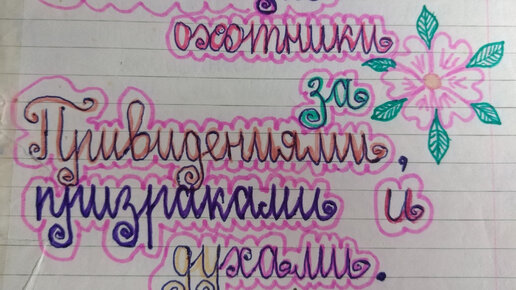 охотники
за
Привидениями,
призраками и
духами.